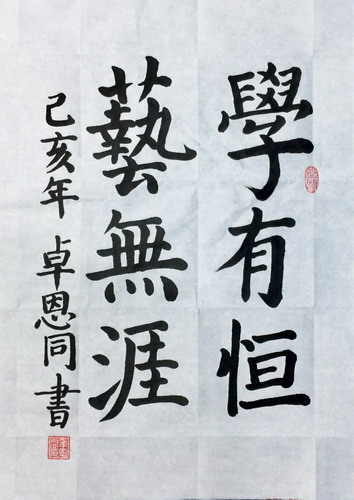 學有恒
藝無涯
己亥年 卓恩同書